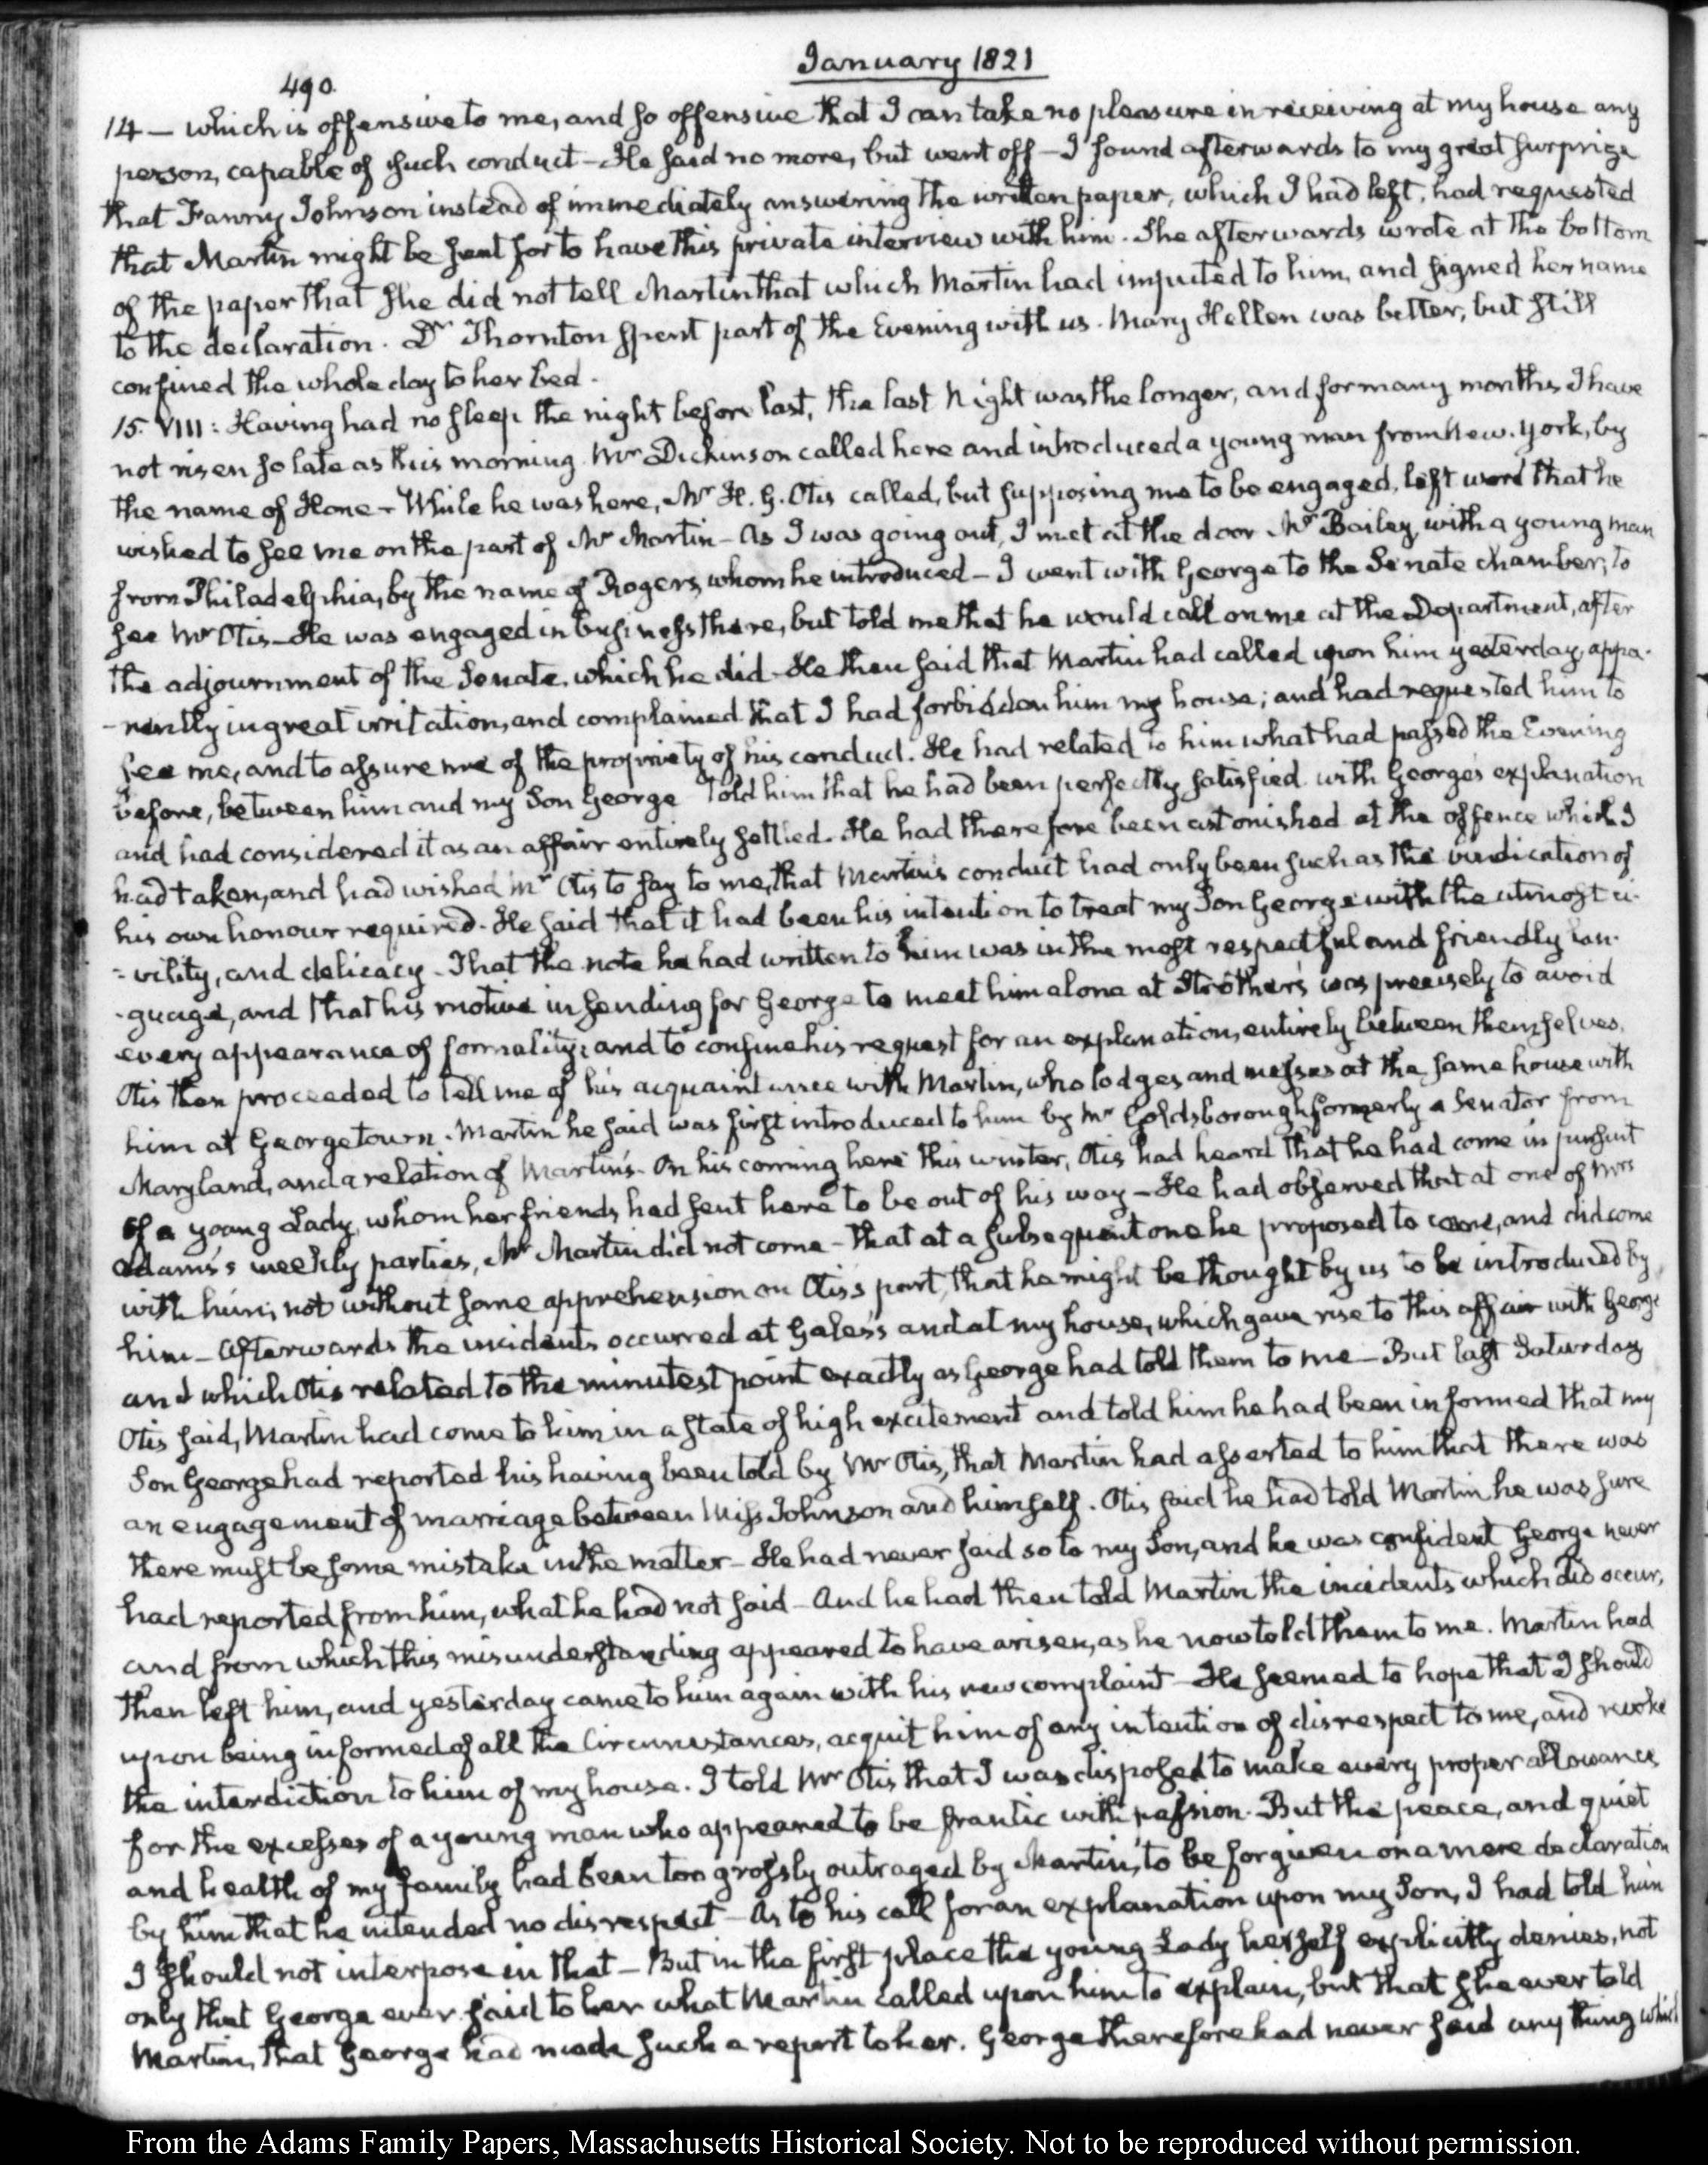 January 1821
490
14 — which is offensive to me, and so offensive that I can take no pleasure in receiving at my house any
person, capable of such conduct — He said no more, but went off — I found afterwards to my great surprize
that Fanny Johnson instead of immediately answering the written paper, which I had left, had requested
that Martin might be sent for to have this private interview with him. She afterwards wrote at the bottom
of the paper that she did not tell Martin that which Martin had imputed to him, and signed her name
to the declaration. Dr Thornton spent part of the Evening with us. Mary Hellen was better, but still
confined the whole day to her bed.
15. VIII: Having had no sleep the night before last, the last Night was the longer, and for many months I have
not risen so late as this morning. Mr Dickinson called here and introduced a young man from New-York, by
the name of Hone — While he was here, Mr H. G. Otis called, but supposing me to be engaged, left word that he
wished to see me on the part of Mr Martin — As I was going out, I met at the door Mr Bailey with a young man
from Philadelphia, by the name of Rogers, whom he introduced — I went with George to the Senate chamber, to
see Mr Otis — He was engaged in business there, but told me that he would call on me at the Department, after
the adjournment of the Senate, which he did — He then said that Martin had called upon him yesterday, appa-
-rently in great irritation, and complained that I had forbidden him my house; and had requested him to
see me, and to assure me of the propriety of his conduct. He had related to him what had passed the Evening
before, between him and my Son George Told him that he had been perfectly satisfied with George's explanation
and had considered it as an affair entirely settled. He had therefore been astonished at the offence which I
had taken, and had wished Mr Otis to say to me, that Martin's conduct had only been such as the vindication of
his own honour required. He said that it had been his intention to treat my Son George with the utmost ci-
=vility, and delicacy — That the note he had written to him was in the most respectful and friendly lan-
-guage, and that his motive in sending for George to meet him alone at Strother's was precisely to avoid
every appearance of formality; and to confine his request for an explanation, entirely between themselves.
Otis then proceeded to tell me of his acquaintance with Martin, who lodges and messes at the same house with
him at Georgetown. Martin he said was first introduced to him by Mr Goldsborough formerly a Senator from
Maryland, and a relation of Martin's. On his coming here this winter, Otis had heard that he had come in pursuit
of a young Lady, whom her friends had sent here to be out of his way — He had observed that at one of Mrs
Adams's weekly parties, Mr Martin did not come — that at a subsequent one he proposed to come, and did come
with him; not without some apprehension on Otis's part, that he might be thought by us to be introduced by
him — Afterwards the incidents occurred at Gales's and at my house, which gave rise to this affair with George
and which Otis related to the minutest point exactly as George had told them to me — But last Saturday
Otis said, Martin had come to him in a state of high excitement and told him he had been informed that my
Son George had reported his having been told by Mr Otis, that Martin had asserted to him that there was
an engagement of marriage between Miss Johnson and himself. Otis said he had told Martin he was sure
there must be some mistake in the matter — He had never said so to my Son, and he was confident George never
had reported from him, what he had not said — And he had then told Martin the incidents which did occur,
and from which this misunderstanding appeared to have arisen, as he now told them to me. Martin had
then left him, and yesterday came to him again with his new complaint — He seemed to hope that I should
upon being informed of all the Circumstances, acquit him of any intention of disrespect to me, and revoke
the interdiction to him of my house. I told Mr Otis that I was disposed to make every proper allowance
for the excesses of a young man who appeared to be frantic with passion. But the peace, and quiet
and health of my family had been too grossly outraged by Martin, to be forgiven on a mere declaration
by him that he intended no disrespect — As to his call for an explanation upon my Son, I had told him
I should not interpose in that — But in the first place the young Lady herself explicitly denies, not
only that George ever said to her what Martin called upon him to explain, but that she ever told
Martin, that George had made such a report to her. George therefore had never said any thing which
From the Adams Family Papers, Massachusetts Historical Society. Not to be reproduced without permission.